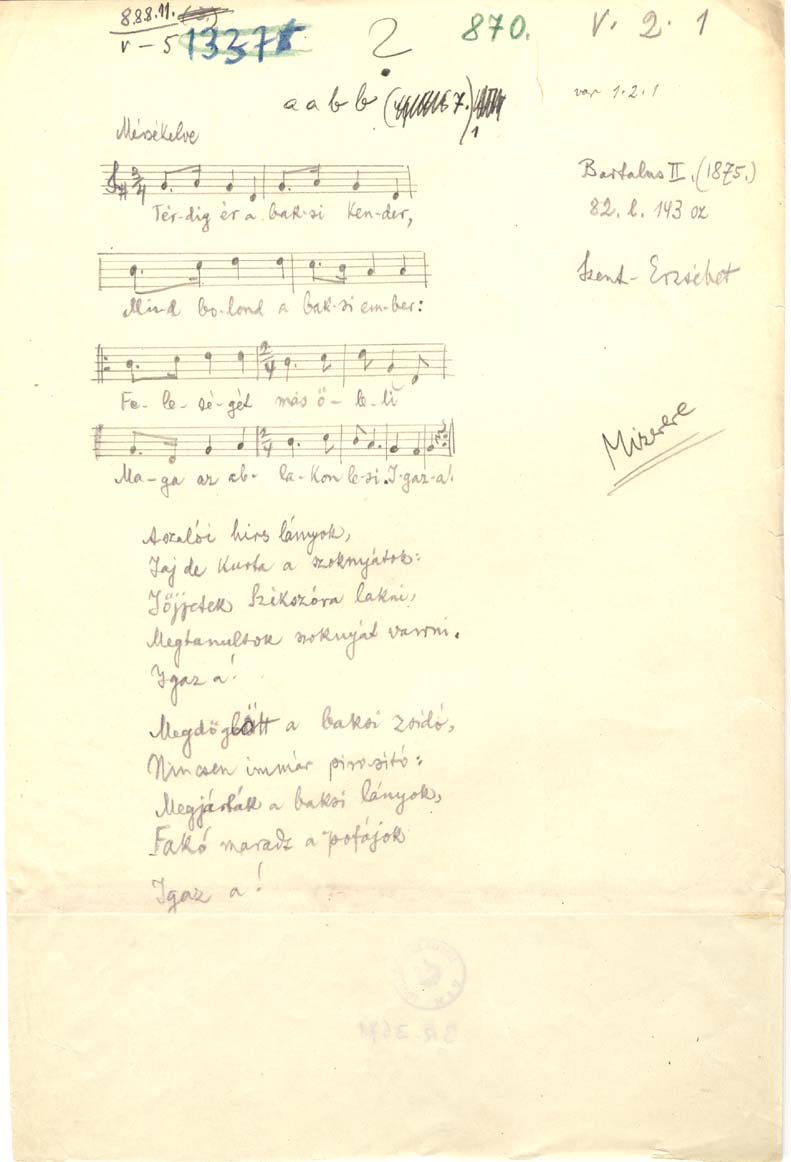 8.8.8.11.
V – 5 1337
?
870.
V. 2. 1
a a b b
var 1.2.1
Mérsékelve
Bartalus II. (1875.)
82. l. 143 sz
Szent-Erzsébet
3/4
Tér-dig ér a bak-si ken-der,
Mind bo-lond a bak-si em-ber:
2/4
Fe-le-sé-gét más ö-le-li
2/4
Ma-ga az ab-la-kon le-si. I-gaz-a!
Mizerere
Aszalói hirs lányok,
Jaj de kurta a szoknyátok:
Jőjjetek Szikszóra lakni,
Megtanultok szoknyát varrni.
Igaz a!
Megdöglött a baksi zsidó,
Nincsen immár pirositó:
Megjárták a baksi lányok,
Fakó maradz a pofájok
Igaz a!